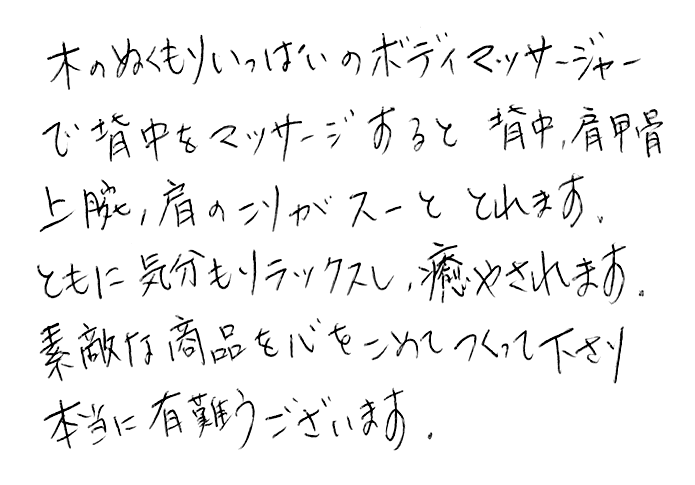 木のぬくもりいっぱいのボディマッサージャー
で背中をマッサージすると 背中、肩甲骨
上腕、肩のコリがスーと とれます。
ともに気分もリラックスし、癒やされます。
素敵な商品を心をこめてつくって下さり
本当に有難うございます.